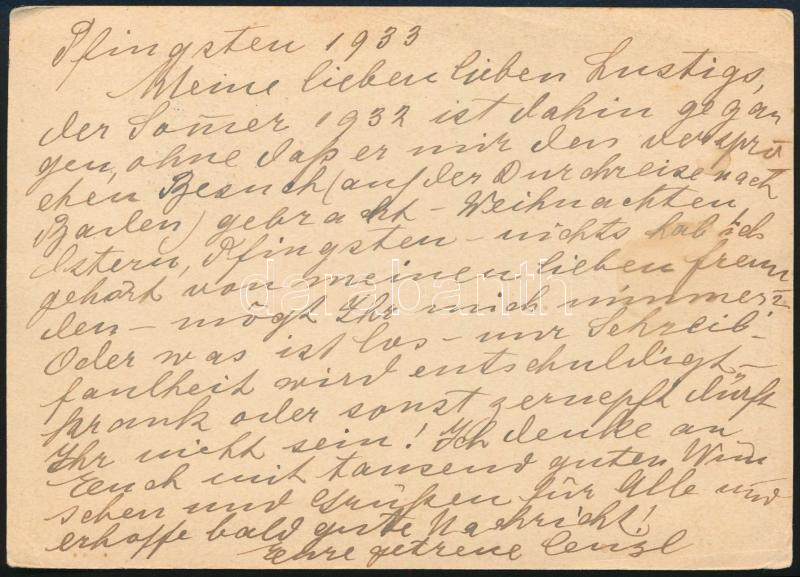 Pfingsten 1933
Meine lieben lieben Lustigs,
der Som̄er 1932 ist dahin gegan
gen, ohne daß er mir den verspro
chen Besuch (auf der Durchreise nach
Baden) gebracht - Weihnachten,
Ostern, Pfingsten - nichts hab ich
gehört von meinen lieben Freun
den - mögt Ihr mich nimmer?
Oder was ist los - nur Schreib-
faulheit wird entschuldigt -
krank oder sonst zerrupft dürft
Ihr nicht sein! Ich denke an
Euch mit tausend guten Wün
schen und Grüßen für Alle und
erhoffe bald gute Nachricht!
Eure getreue Cenzl
darabanth